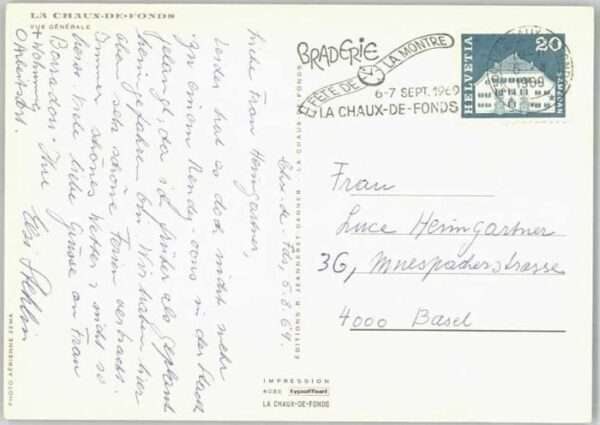 LA CHAUX-DE-FONDS
VUE GÉNÉRALE
Chx-de-Fds, 5.8.69.
Liebe Frau Heimgartner,
Leider hat es doch nicht mehr
zu einem Rendez-vous in der Stadt
gelangt, da ich früher als geplant
heimgefahren bin. Wir haben hier
oben sehr schöne Ferien verbracht.
Immer schönes Wetter & nicht so
heiss. Viele liebe Grüsse an Frau
Ihre Elsi Stehlin
+ Wohnung
O Arbeitsort.
PHOTO AÉRIENNE
ÉDITIONS R. JEANNERET-DANNER - LA CHAUX-DE-FONDS
IMPRESSION
typoffset
LA CHAUX-DE-FONDS
BRADERIE
FÊTE DE LA MONTRE
6-7 SEPT. 1969
LA CHAUX-DE-FONDS
HELVETIA
20
Frau
Luce Heimgartner
36, Mnespacherstrasse
4000 Basel